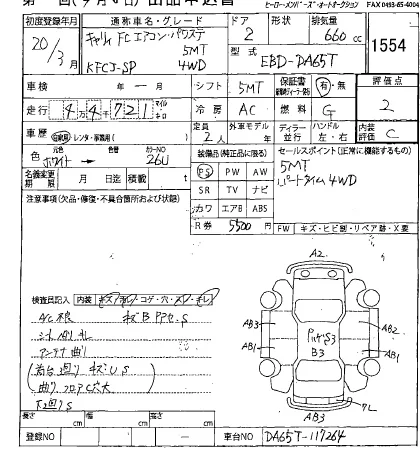 ヒーロー・メンバーズ・オートオークション FAX 0493-65-4004
初度登録年月 通称車名・グレード ドア 形状 排気量
20/3月 キャリィ FC エアコン・パワステ 5MT 2 660 cc 1554
KFCJ-SP 4WD 型式 EBD-DA65T
車検 年 月 シフト 5MT 保証書 有・無 評価点
走行 4万4千721 冷房 AC 燃料 G 2
車歴 自家用・レンタ・事業用 定員 2人 外車モデル 年 ディーラー 並行 ハンドル 左・右 内装評価 C
色 元色 ホワイト → 色替 カラーNO 26U
装備品(純正品に限る) セールスポイント(正常に機能するもの)
名義変更期限 月 日迄 積載 t
PS PW AW 5MT
SR TV ナビ パートタイム4WD
カワ エアB ABS
注意事項(欠品・修復・不具合箇所および状態)
R券 5500円
FW キズ・ヒビ割・リペア跡・X要
検査員記入 内装 キズ・汚レ・コゲ・穴・スレ・キレ
シート切レ
アンテナ曲り
A2
AB3 AB2
AB1 AB1
B3
7L
AB3
長さ cm 幅 cm 高さ cm
登録NO 車台NO DA65T-117264